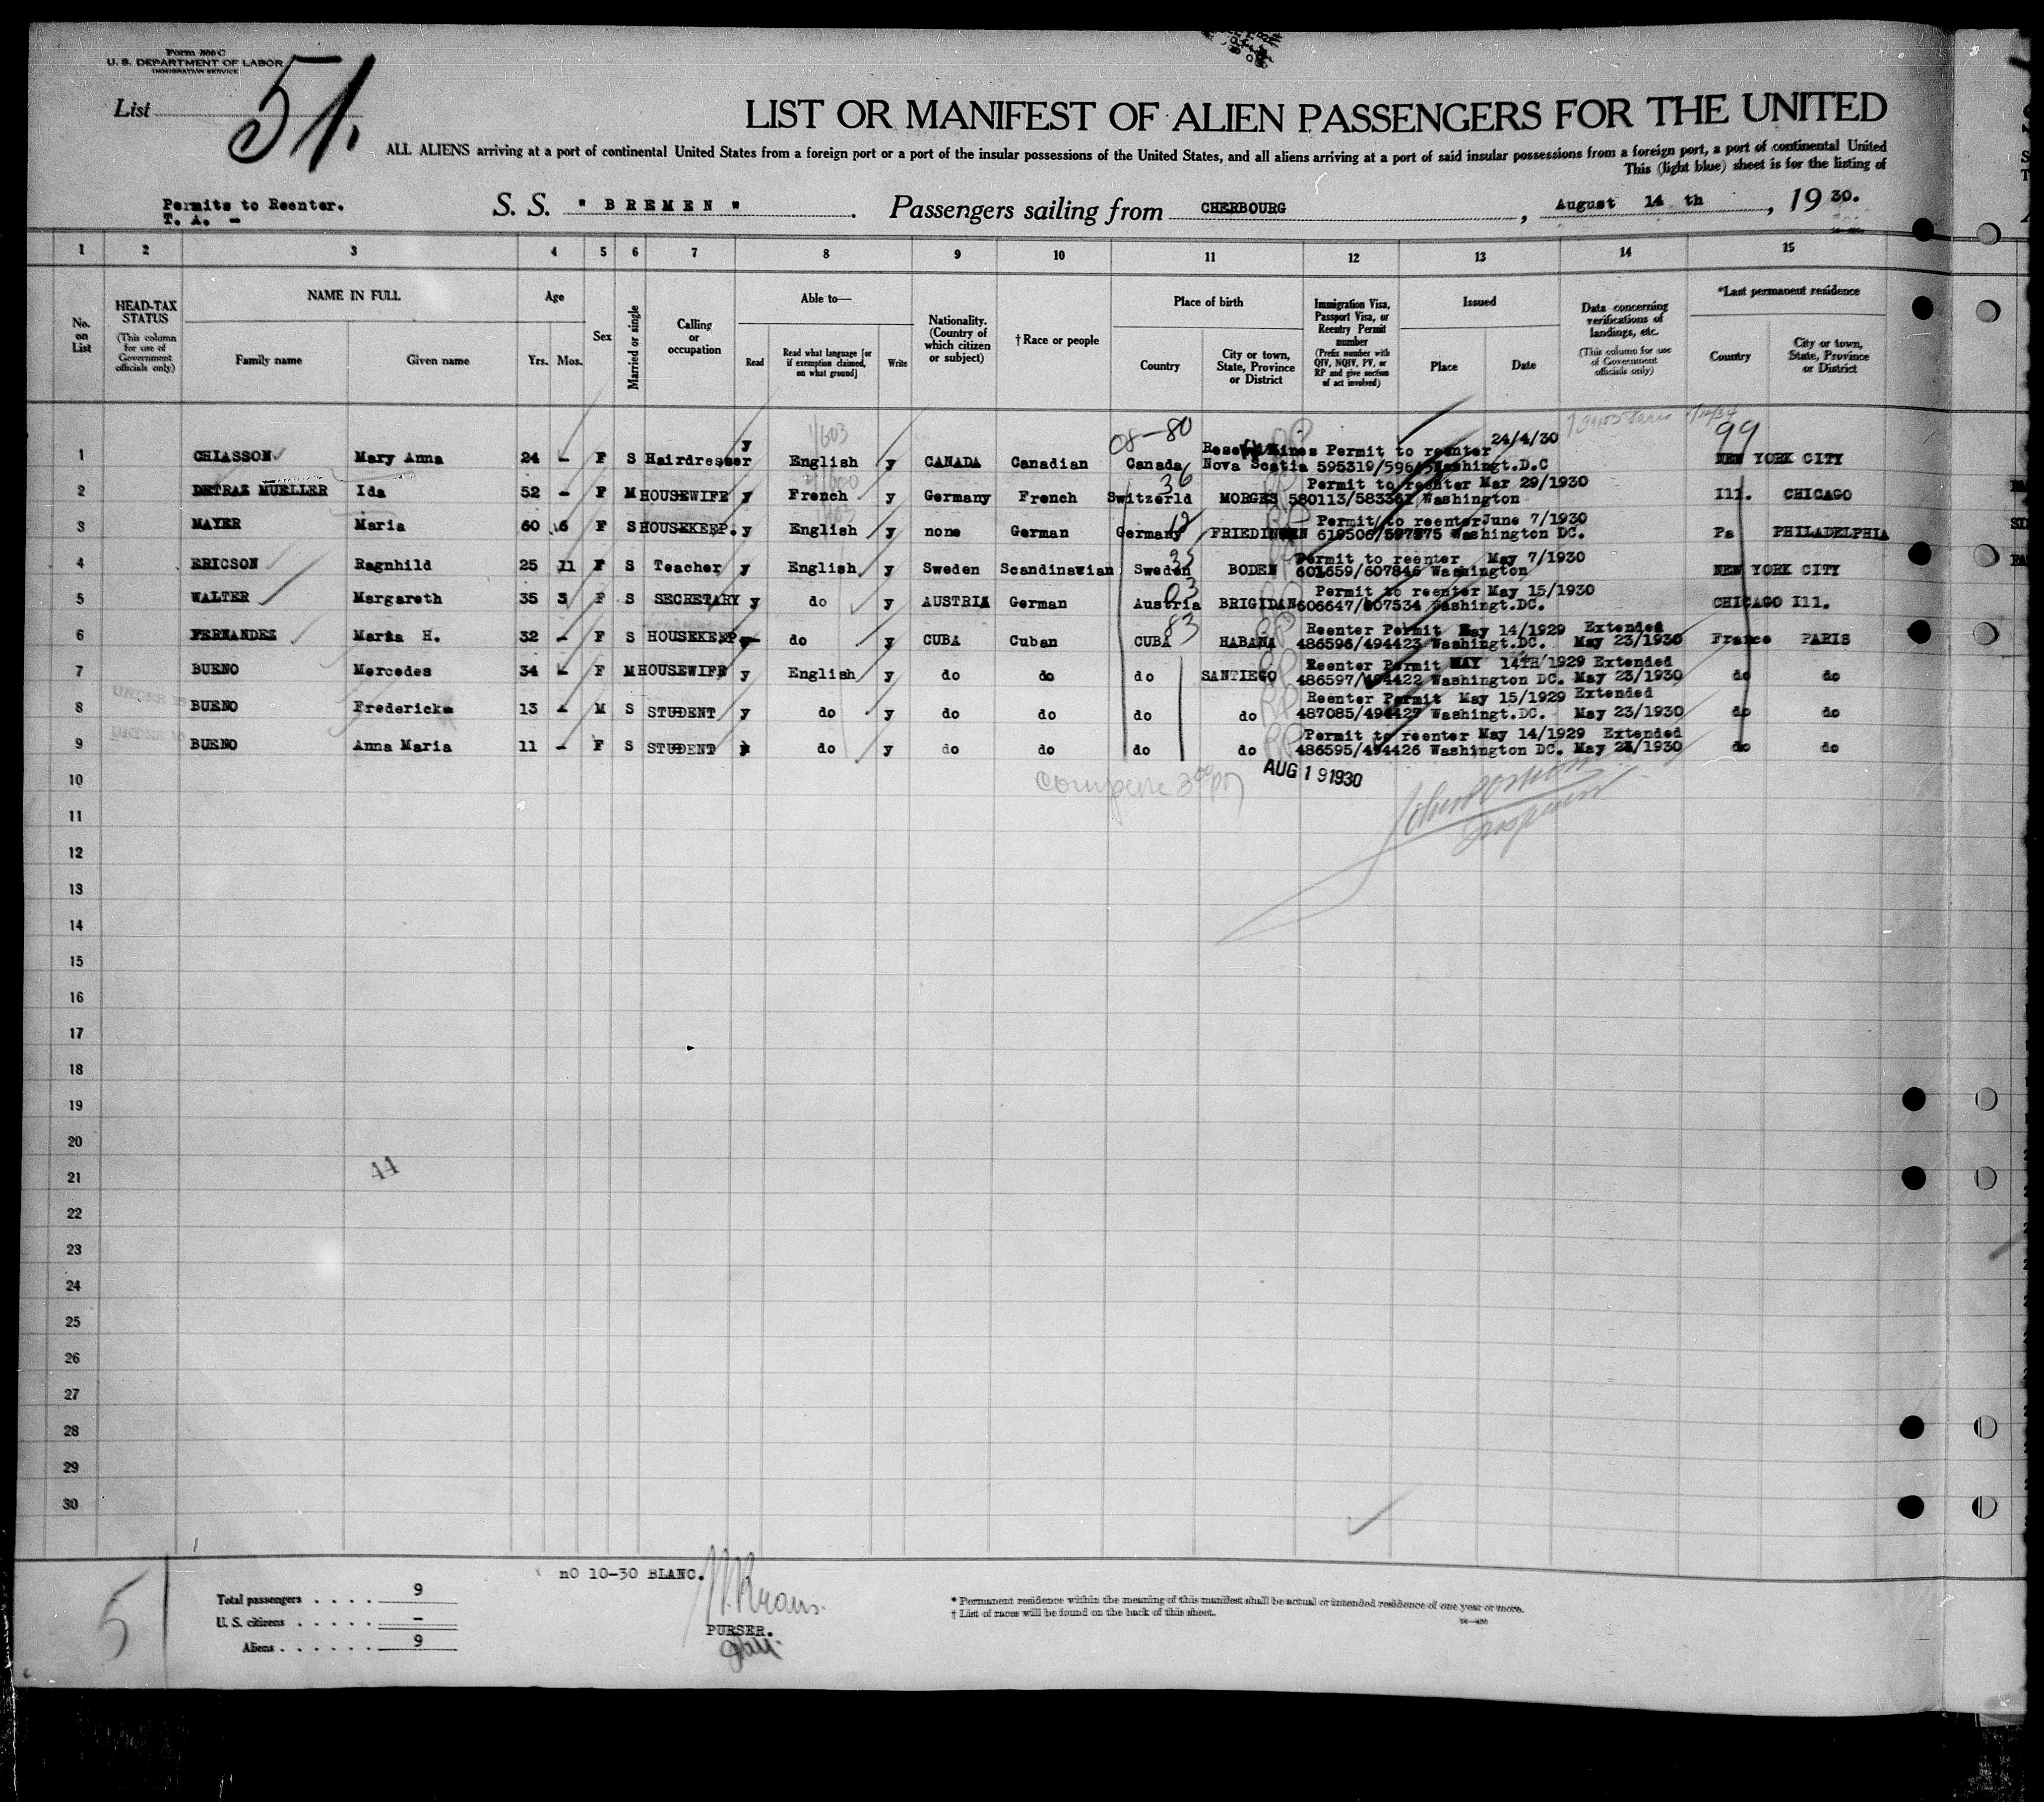 Form 500 C
U. S. DEPARTMENT OF LABOR
IMMIGRATION SERVICE
List 51.
LIST OR MANIFEST OF ALIEN PASSENGERS FOR THE UNITED
ALL ALIENS arriving at a port of continental United States from a foreign port or a port of the insular possessions of the United States, and all aliens arriving at a port of said insular possessions from a foreign port, a port of continental United
This (light blue) sheet is for the listing of
Permits to Reenter.
T. A. -
S. S. " BREMEN " . Passengers sailing from CHERBOURG , August 14 th , 19 30.
1 2 3 4 5 6 7 8 9 10 11 12 13 14 15
No. on List
HEAD-TAX STATUS (This column for use of Government officials only)
NAME IN FULL Family name Given name
Age Yrs. Mos.
Sex
Married or single
Calling or occupation
Able to— Read Read what language [or if exemption claimed, on what ground] Write
Nationality. (Country of which citizen or subject)
† Race or people
Place of birth Country City or town, State, Province or District
Immigration Visa, Passport Visa, or Reentry Permit number (Prefix number with QIV, NQIV, PV, or RP and give section of act involved)
Issued Place Date
Data concerning verifications of landings, etc. (This column for use of Government officials only)
*Last permanent residence Country City or town, State, Province or District
08-80 24/4/30 99
1 CHIASSON Mary Anna 24 - F S Hairdresser y English y CANADA Canadian Canada Nova Scotia Mines Permit to reenter 595319/ Washingt.D.C NEW YORK CITY
2 DETRAZ MUELLER Ida 52 - F M HOUSEWIFE y French y Germany French Switzerld MORGES Permit to reenter Mar 29/1930 580113/583361 Washington Ill. CHICAGO
3 MAYER Maria 60 6 F S HOUSEKEEP. y English y none German Germany Permit to reenter June 7/1930 619506/597575 Washington DC. Pa PHILADELPHIA
4 ERICSON Ragnhild 25 11 F S Teacher y English y Sweden Scandinavian Sweden BODEN Permit to reenter May 7/1930 601659/607846 Washington NEW YORK CITY
5 WALTER Margareth 35 3 F S SECRETARY y do y AUSTRIA German Austria BRIGIDAN Permit to reenter May 15/1930 606647/607534 Washingt.DC. CHICAGO Ill.
6 FERNANDEZ Maria H. 32 - F S HOUSEKEEP y do y CUBA Cuban CUBA HABANA Reenter Permit May 14/1929 Extended 486596/494423 Washingt.DC. May 23/1930 France PARIS
7 BUENO Mercedes 34 - F M HOUSEWIFE y English y do do do SANTIEGO Reenter Permit MAY 14TH/1929 Extended 486597/494422 Washington DC. May 23/1930 do do
8 BUENO Fredericka 13 - M S STUDENT y do y do do do do Reenter Permit May 15/1929 Extended 487085/494427 Washingt.DC. May 23/1930 do do
9 BUENO Anna Maria 11 - F S STUDENT do y do do do do Permit to reenter May 14/1929 Extended 486595/494426 Washington DC. May 23/1930 do do
10
AUG 19 1930
11
12
13
14
15
16
17
18
19
20
21
44
22
23
24
25
26
27
28
29
30
nO 10-30 BLANC.
51
Total passengers . . . . 9
U. S. citizens . . . . . -
Aliens . . . . . . 9
PURSER.
* Permanent residence within the meaning of this manifest shall be actual or intended residence of one year or more.
† List of races will be found on the back of this sheet.